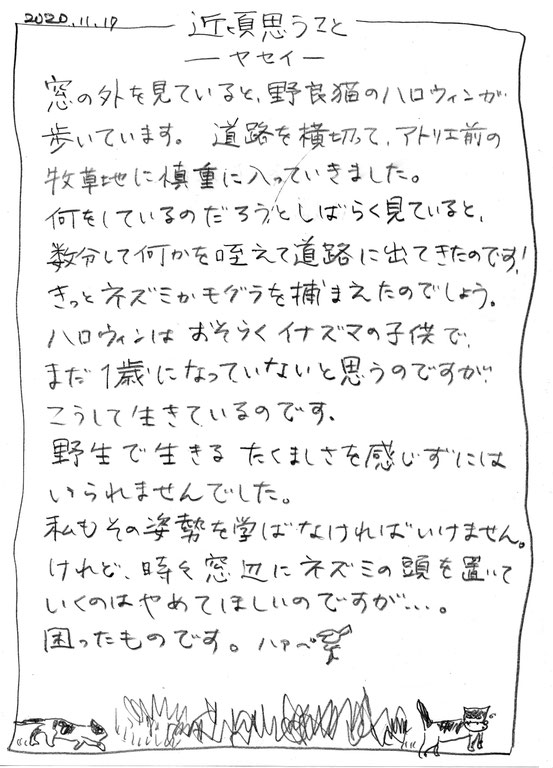 2020.11.19
近頃思うこと
ーヤセイー
窓の外を見ていると、野良猫のハロウィンが
歩いています。 道路を横切って、アトリエ前の
牧草地に慎重に入っていきました。
何をしているのだろうとしばらく見ていると、
数分して何かを咥えて道路に出てきたのです!
きっとネズミかモグラを捕まえたのでしょう。
ハロウィンは おそらく イナズマの子供で、
まだ 1歳になっていないと思うのですが
こうして生きているのです、
野生で生きる たくましさを感じずには
いられませんでした。
私もその姿勢を学ばなければいけません。
けれど、時々 窓辺に ネズミの頭を置いて
いくのはやめてほしいのですが…。
困ったものです。